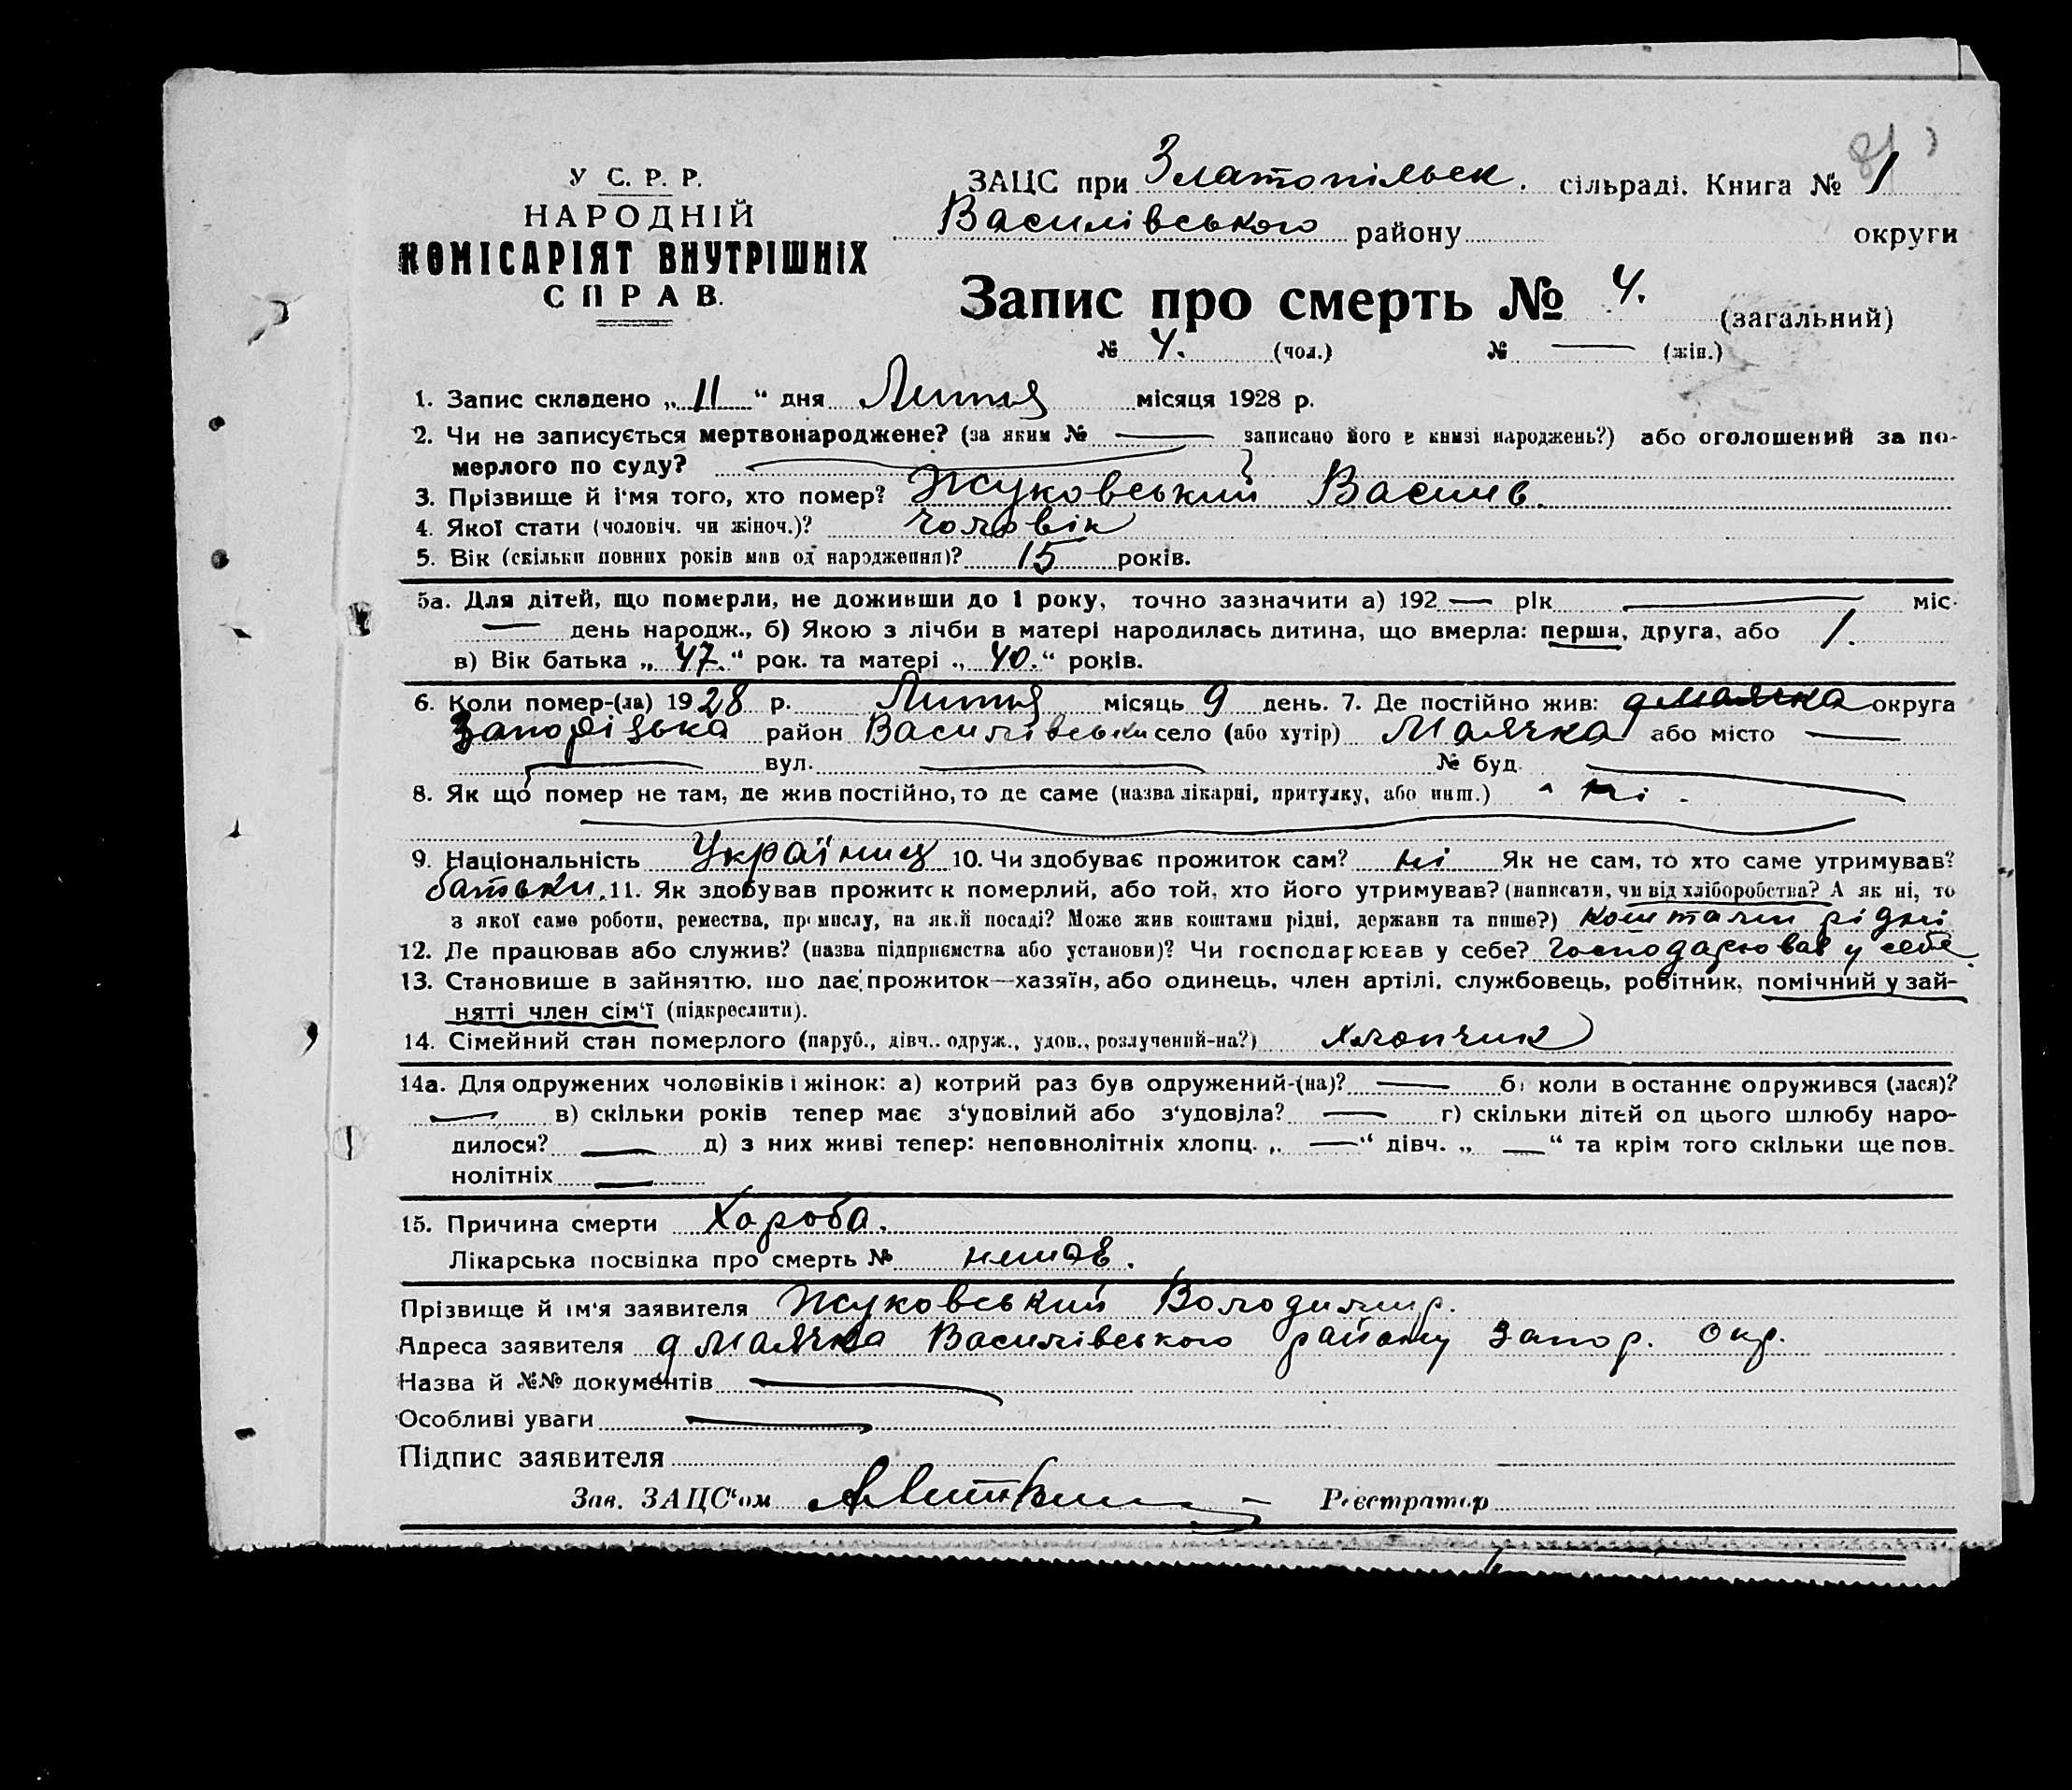 81
У С. Р. Р.
НАРОДНІЙ
КОМІСАРІЯТ ВНУТРІШНІХ
СПРАВ.
ЗАЦС при Златопільск. сільраді. Книга № 1
Василівського району округи
Запис про смерть № 4. (загальний)
№ 4. (чол.) № — (жін.)
1. Запис складено „11“ дня Липня місяця 1928 р.
2. Чи не записується мертвонароджене? (за яким № — записано його в книзі народжень?) або оголошений за по-
мерлого по суду? —
3. Прізвище й ім'я того, хто помер? Жуковський Василь.
4. Якої стати (чоловіч. чи жіноч.)? чоловік
5. Вік (скільки повних років мав од народження)? 15 років.
5а. Для дітей, що померли, не доживши до 1 року, точно зазначити а) 192 — рік — міс.
— день народж., б) Якою з лічби в матері народилась дитина, що вмерла: перша, друга, або 1.
в) Вік батька „47.“ рок. та матері „40.“ років.
6. Коли помер-(ла) 1928 р. Липня місяць 9 день. 7. Де постійно жив: д Маячка округа
Запорізька район Василівськи село (або хутір) Маячка або місто —
— вул. — № буд. —
8. Як що помер не там, де жив постійно, то де саме (назва лікарні, притулку, або инш.) ні.
9. Національність Українец 10. Чи здобуває прожиток сам? ні Як не сам, то хто саме утримував?
батьки. 11. Як здобував прожиток померлий, або той, хто його утримував? (написати, чи від хліборобства? А як ні, то
з якої саме роботи, ремества, промислу, на якій посаді? Може жив коштами рідні, держави та инше?) коштами рідні
12. Де працював або служив? (назва підприємства або установи)? Чи господарював у себе? Господарював у себе.
13. Становише в зайняттю, шо дає прожиток—хазяїн, або одинець, член артілі, службовець, робітник, помічний у зай-
нятті член сім'ї (підкреслити).
14. Сімейний стан померлого (паруб., дівч.. одруж., удов., розлучений-на?) хлопчик
14а. Для одружених чоловіків і жінок: а) котрий раз був одружений-(на)? — б) коли в останнє одружився (лася)?
— в) скільки років тепер має з'уповілий або з'удовіла? — г) скільки дітей од цього шлюбу наро-
дилося? — д) з них живі тепер: неповнолітніх хлопц. „—“ дівч. „—“ та крім того скільки ще пов-
нолітніх —
15. Причина смерти Хороба.
Лікарська посвідка про смерть № немає.
Прізвище й ім'я заявителя Жуковський Володимир.
Адреса заявителя д Маячка Василівського району Запор. Окр.
Назва й №№ документів —
Особливі уваги —
Підпис заявителя
Зав. ЗАЦС'ом Реєстратор